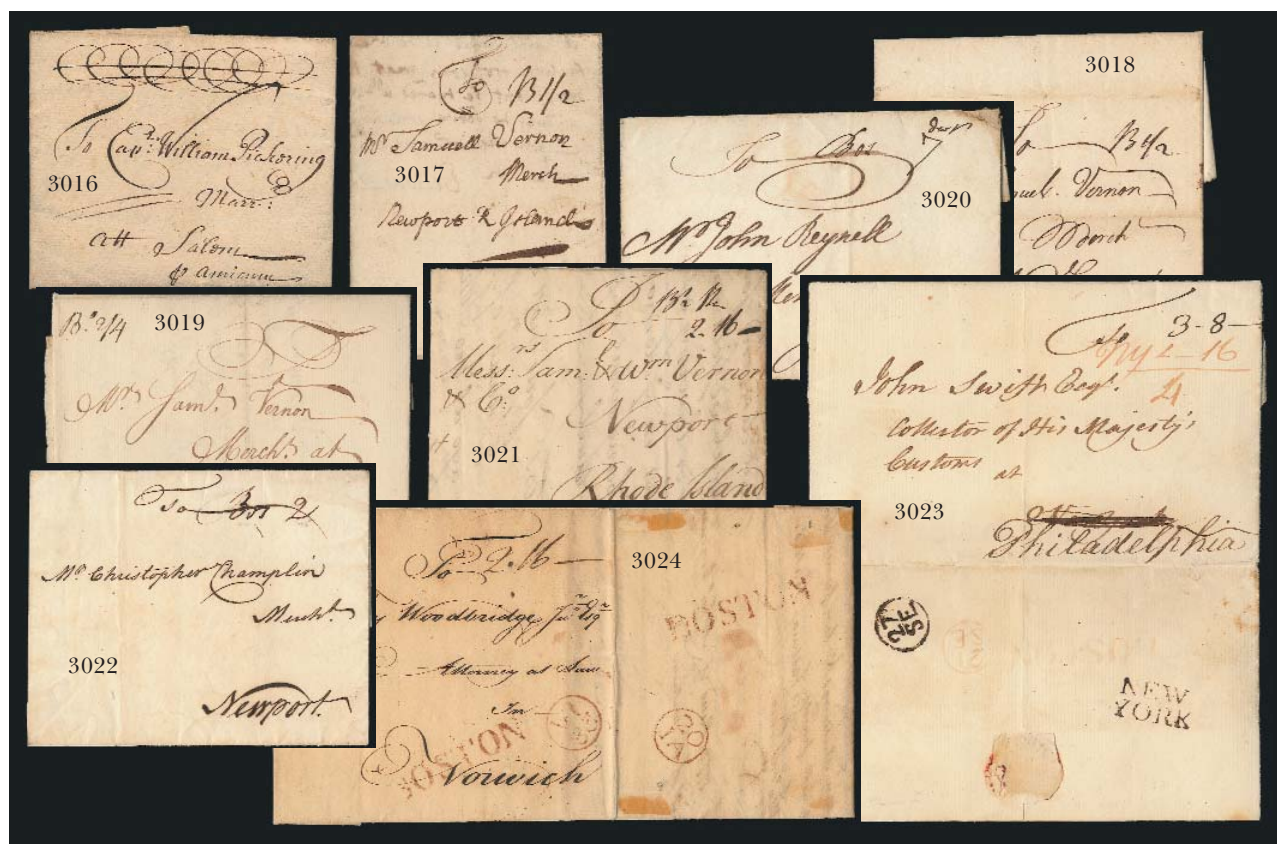 To Capt: William Pickering
Marr:
att Salem
3016
To B 1/2
Mr Samuell Vernon
Merch
3017
Newport R Island
3018
To B 1/2
muel Vernon
Merch
To Bos
7 dwt
3020
Mr John Reynell
Bo 2/4
3019
Mr Saml. Vernon
Mercht. at
To
2.16
Messrs Sam: & Wm Vernon
& Co:
Newport
3021
Rhode Island
To 3-8
2-16
4
John Swift Esqr.
Collector of His Majesty's
Customs
at
3023
Philadelphia
27
SE
NEW
YORK
To Bos 2
Mr Christopher Champlin
Mercht.
3022
Newport.
To 2.16
3024
Woodbridge Junr Esqr
Attorney at Law
In
Norwich
BOSTON
BOSTON